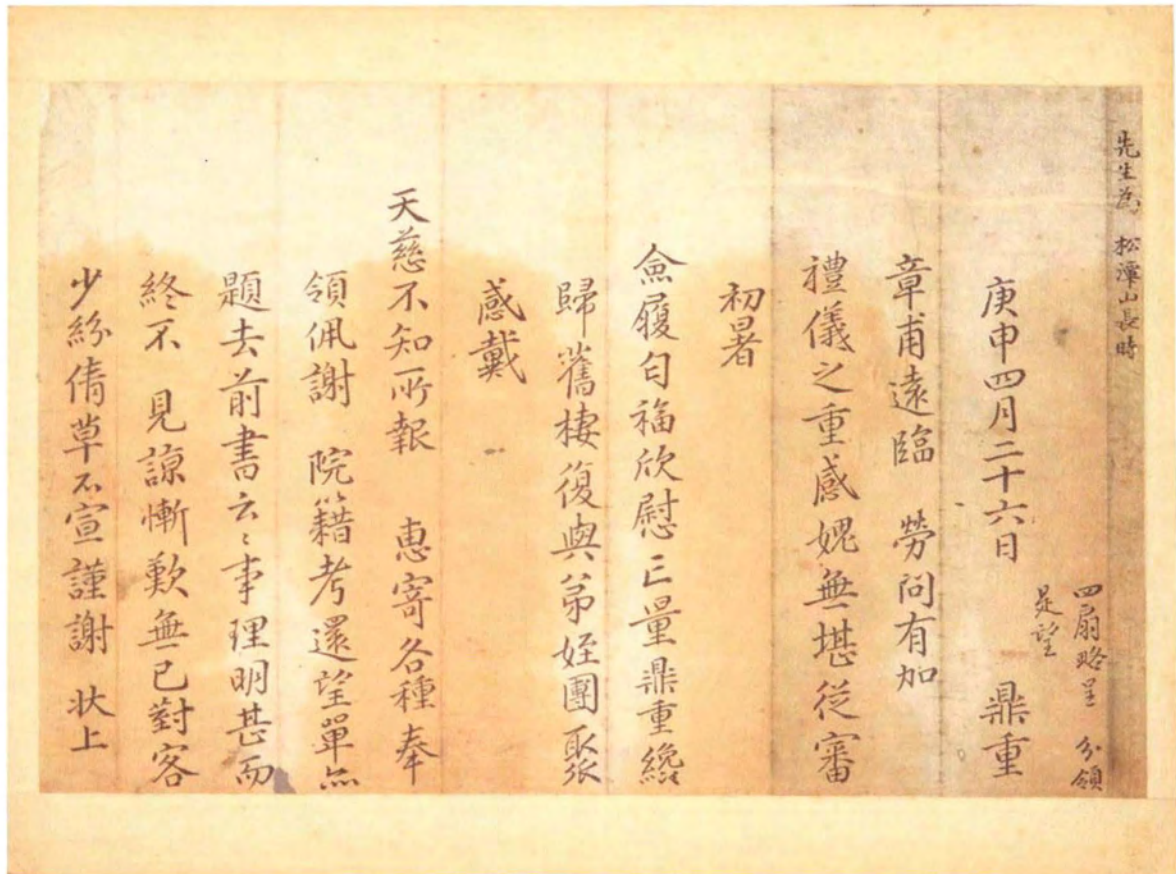 先生為 松潭山長時
四扇略呈 分領
是望
庚申四月二十六日 鼎重
章甫遠臨 勞問有加
禮儀之重感媿無堪從審
初暑
僉履匀福欣慰亡量鼎重纔
歸舊棲復與弟姪團聚
感戴
天慈不知所報 惠寄各種奉
領佩謝 院籍考還望單亦
題去前書云〻事理明甚而
終不 見諒慚歎無已對客
少紛倩草不宣謹謝 狀上